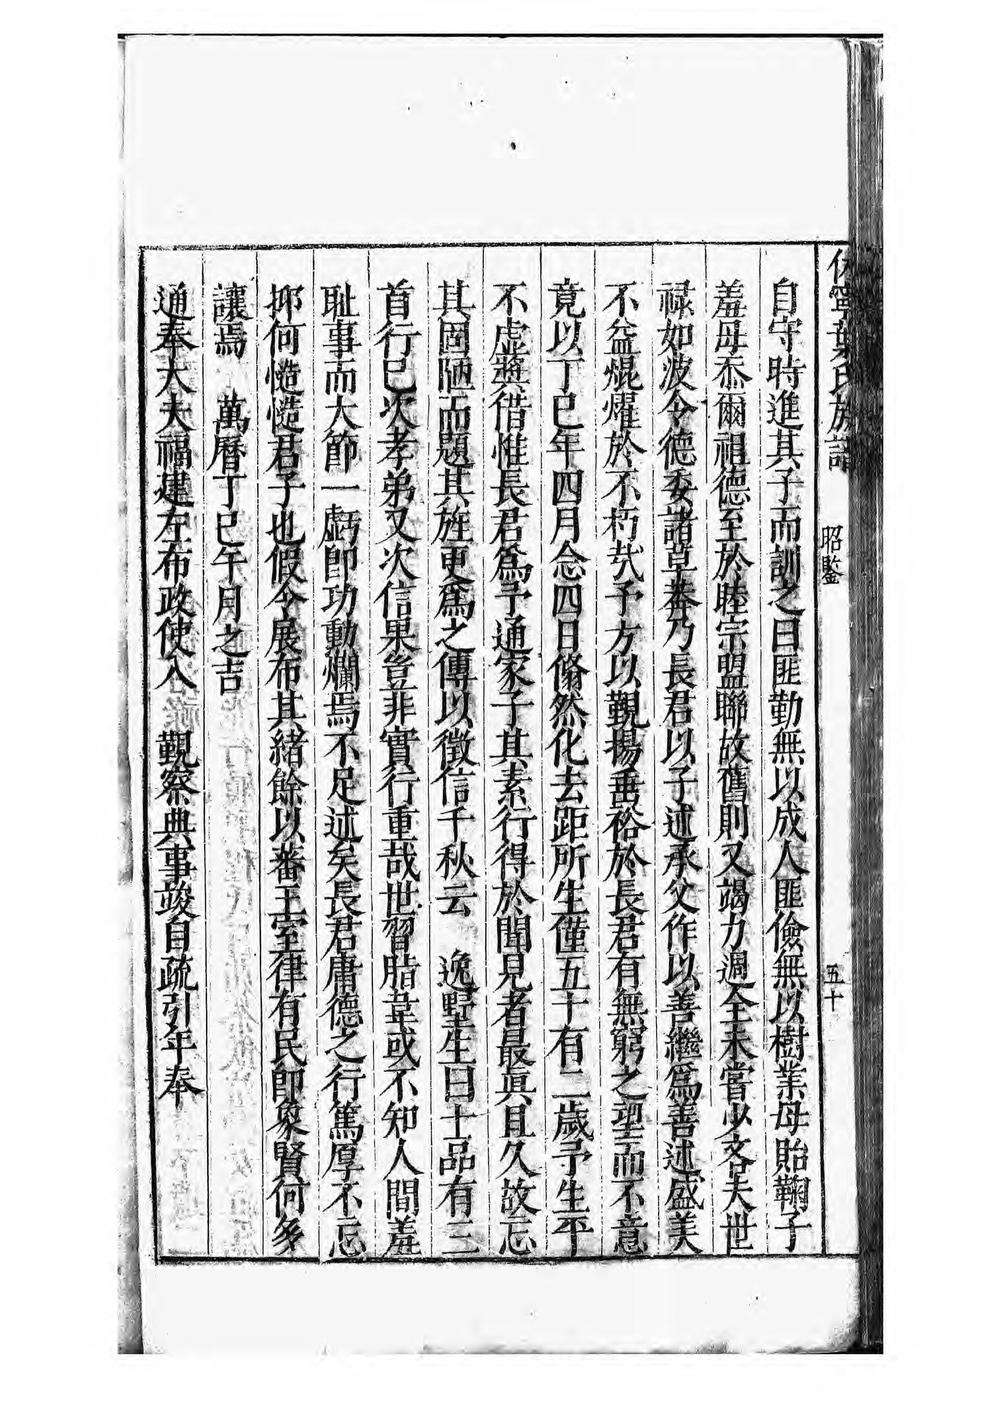 休寧葉氏族譜 昭鑒 五十
自守時進其子而訓之曰匪勤無以成人匪儉無以樹業母貽鞠子
羞母忝爾祖德至於睦宗盟聯故舊則又竭力週全未嘗少吝夫世
祿如波令德委諸草莽乃長君以子述承父作以善繼爲善述盛美
不益焜燿於不朽㢤予方以覲揚垂裕於長君有無窮之望而不意
竟以丁巳年四月念四日翛然化去距所生僅五十有二歲予生平
不虛奬借惟長君爲予通家子其素行得於聞見者最眞且久故忘
其固陋而題其旌更爲之傳以徵信千秋云 逸野生曰士品有三
首行巳次孝弟又次信果豈非實行重哉世習脂韋或不知人間羞
耻事而大節一虧即功動爛焉不足述矣長君庸德之行篤厚不忘
抑何慥慥君子也假令展布其緒餘以蕃王室律有民即象賢何多
讓焉 萬曆丁巳午月之吉
通奉大夫福建左布政使入 覲察典事竣自疏引年奉